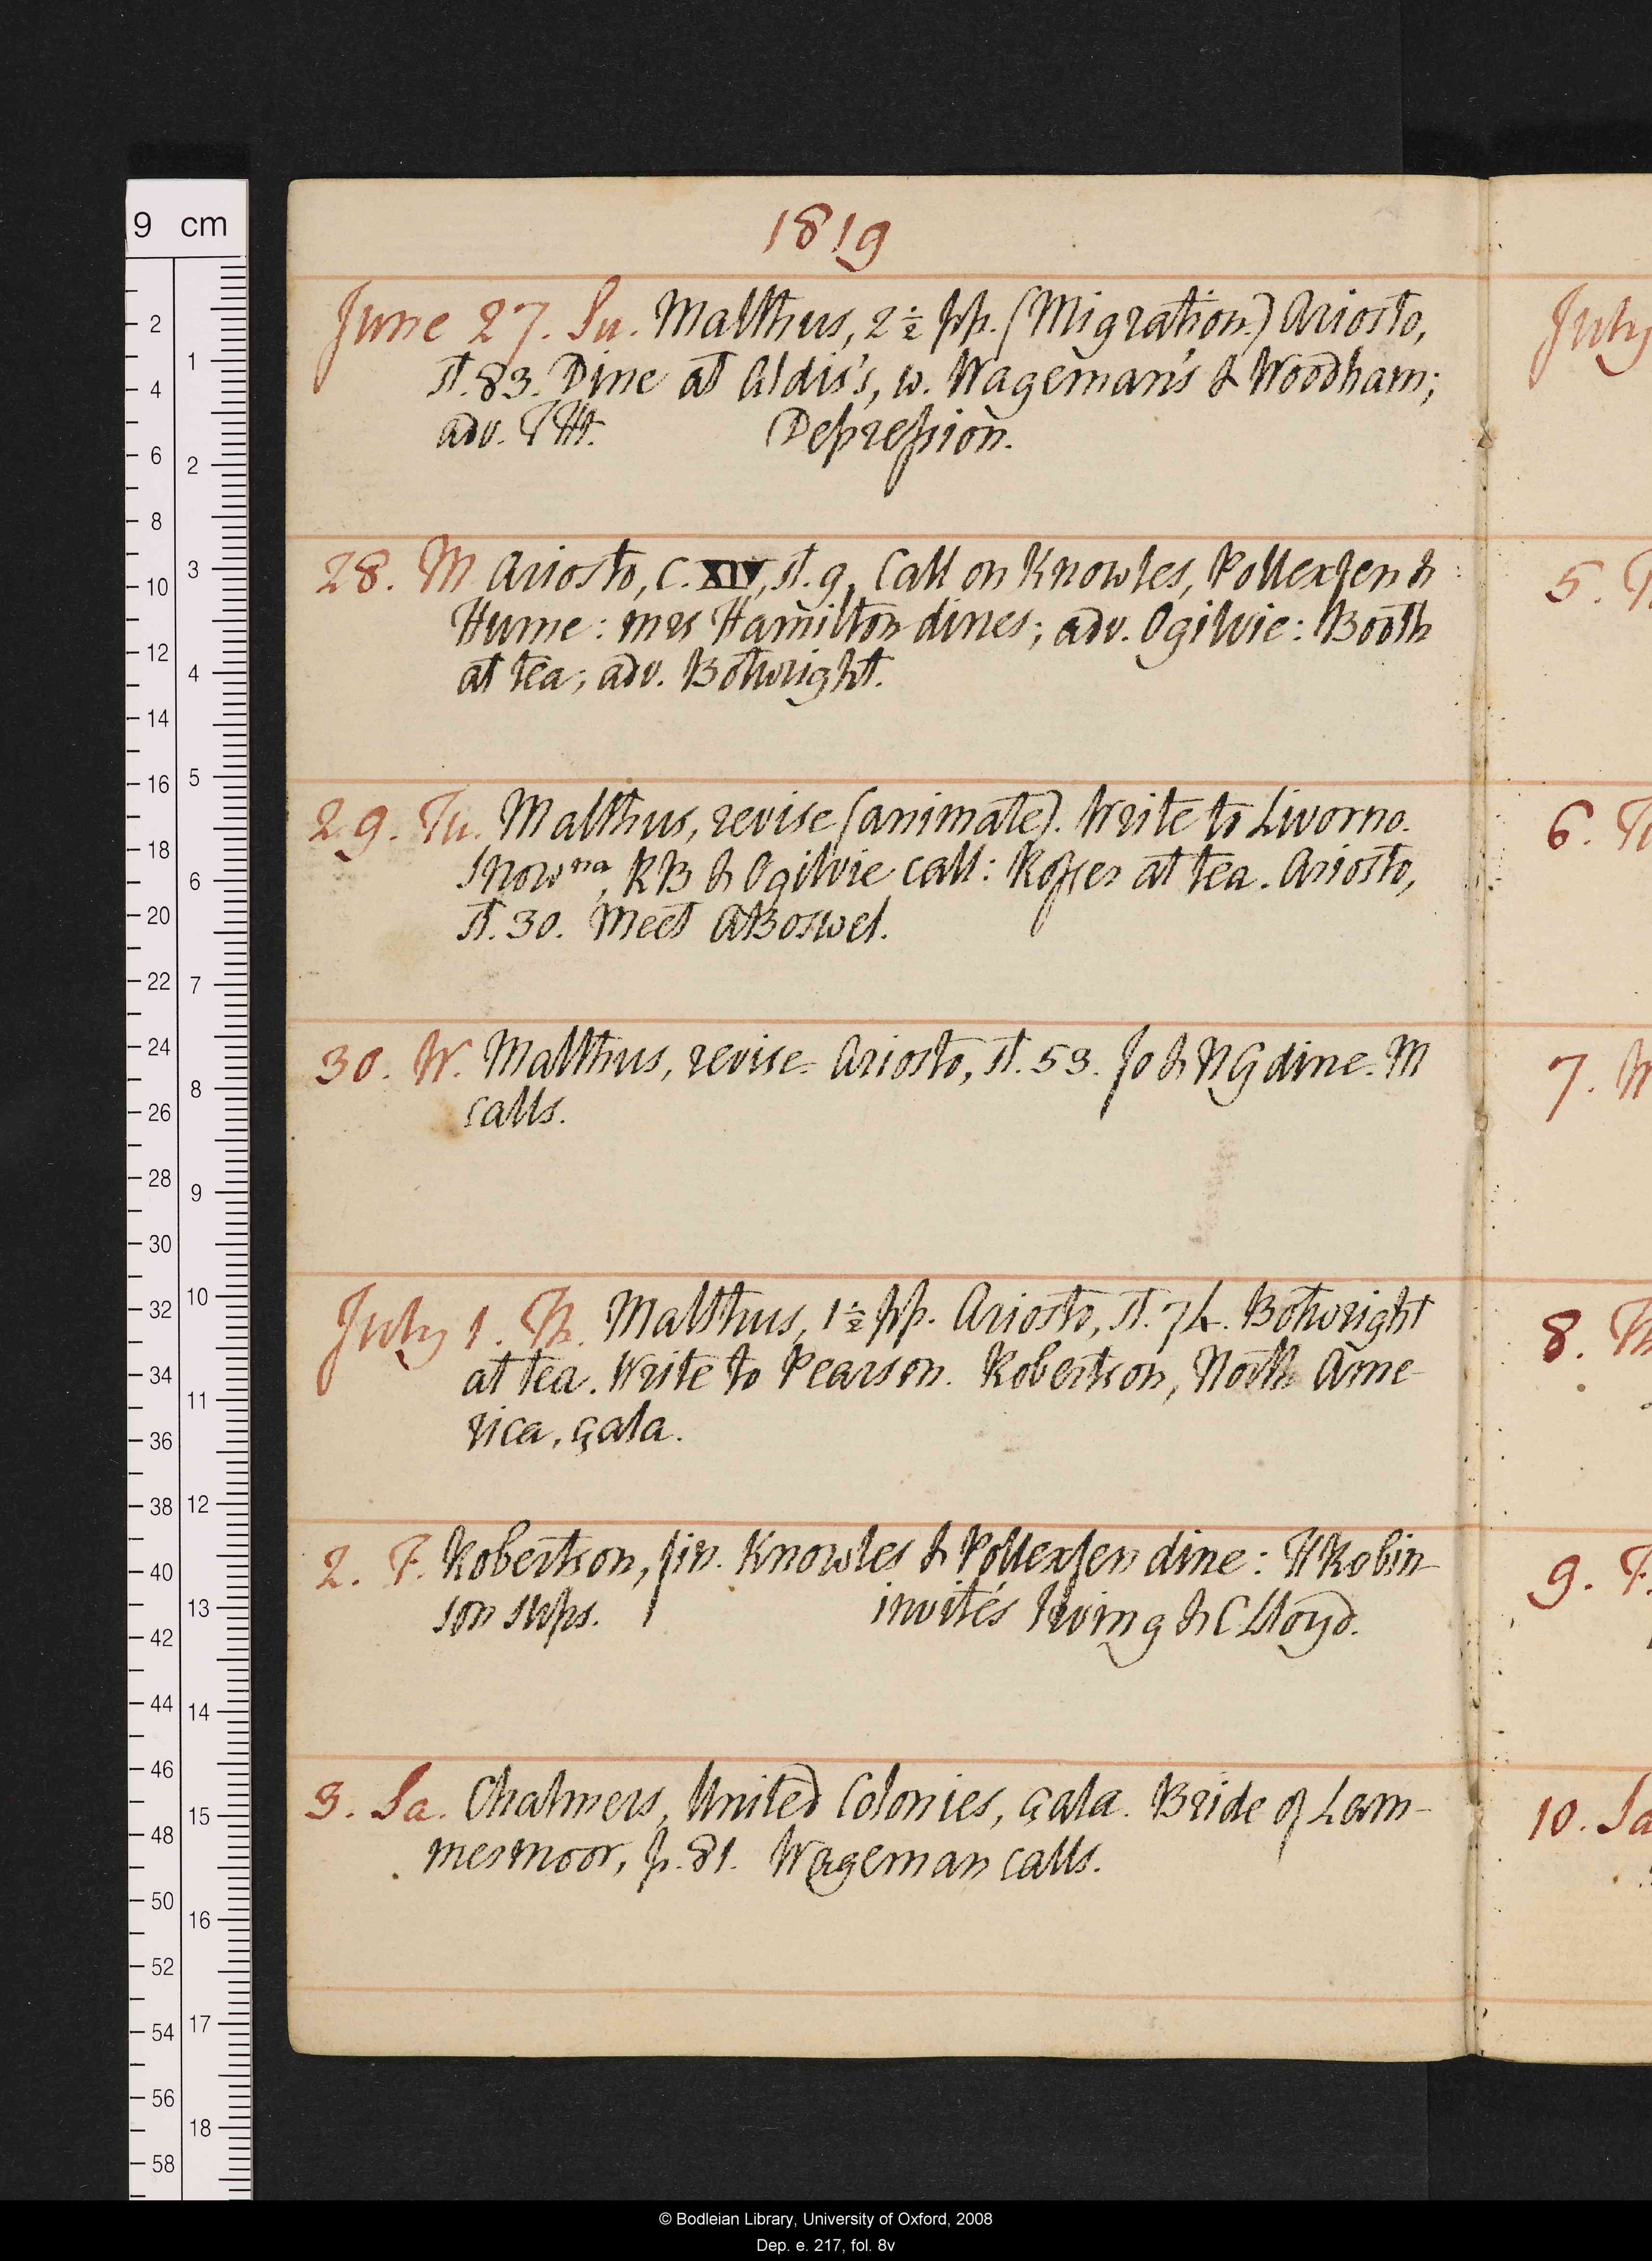 1819
June 27. Su. Malthus, 2½ pp. (Migration.) Ariosto,
st. 83. Dine at Aldis's, w. Wageman's & Woodham;
adv. THt. Depression.
28. M Ariosto, C. XIV, st. 9. Call on Knowles, Pollexfen &
Hume: mrs Hamilton dines; adv. Ogilvie: Booth
at tea; adv. Botwright.
29. Tu. Malthus, revise (animate). Write to Livorno.
Snowna, RB & Ogilvie call: Rosser at tea. Ariosto,
st. 30. Meet ABoswel.
30. W. Malthus, revise. Ariosto, st. 53. Jo & NG dine. M
calls.
July 1. Th. Malthus, 1½ pp. Ariosto, st. 74. Botwright
at tea. Write to Pearson. Robertson, North Ame-
rica, çala.
2. F. Robertson, fin. Knowles & Pollexfen dine: HRobin-
son sups. invités Irving & C Lloyd.
3. Sa. Chalmers, United Colonies, çala. Bride of Lam-
mermoor, p. 81. Wageman calls.
July
5.
6.
7.
8.
9. F.
10. Sa
9 cm
2 4 6 8 10 12 14 16 18 20 22 24 26 28 30 32 34 36 38 40 42 44 46 48 50 52 54 56 58
1 2 3 4 5 6 7 8 9 10 11 12 13 14 15 16 17 18
© Bodleian Library, University of Oxford, 2008
Dep. e. 217, fol. 8v